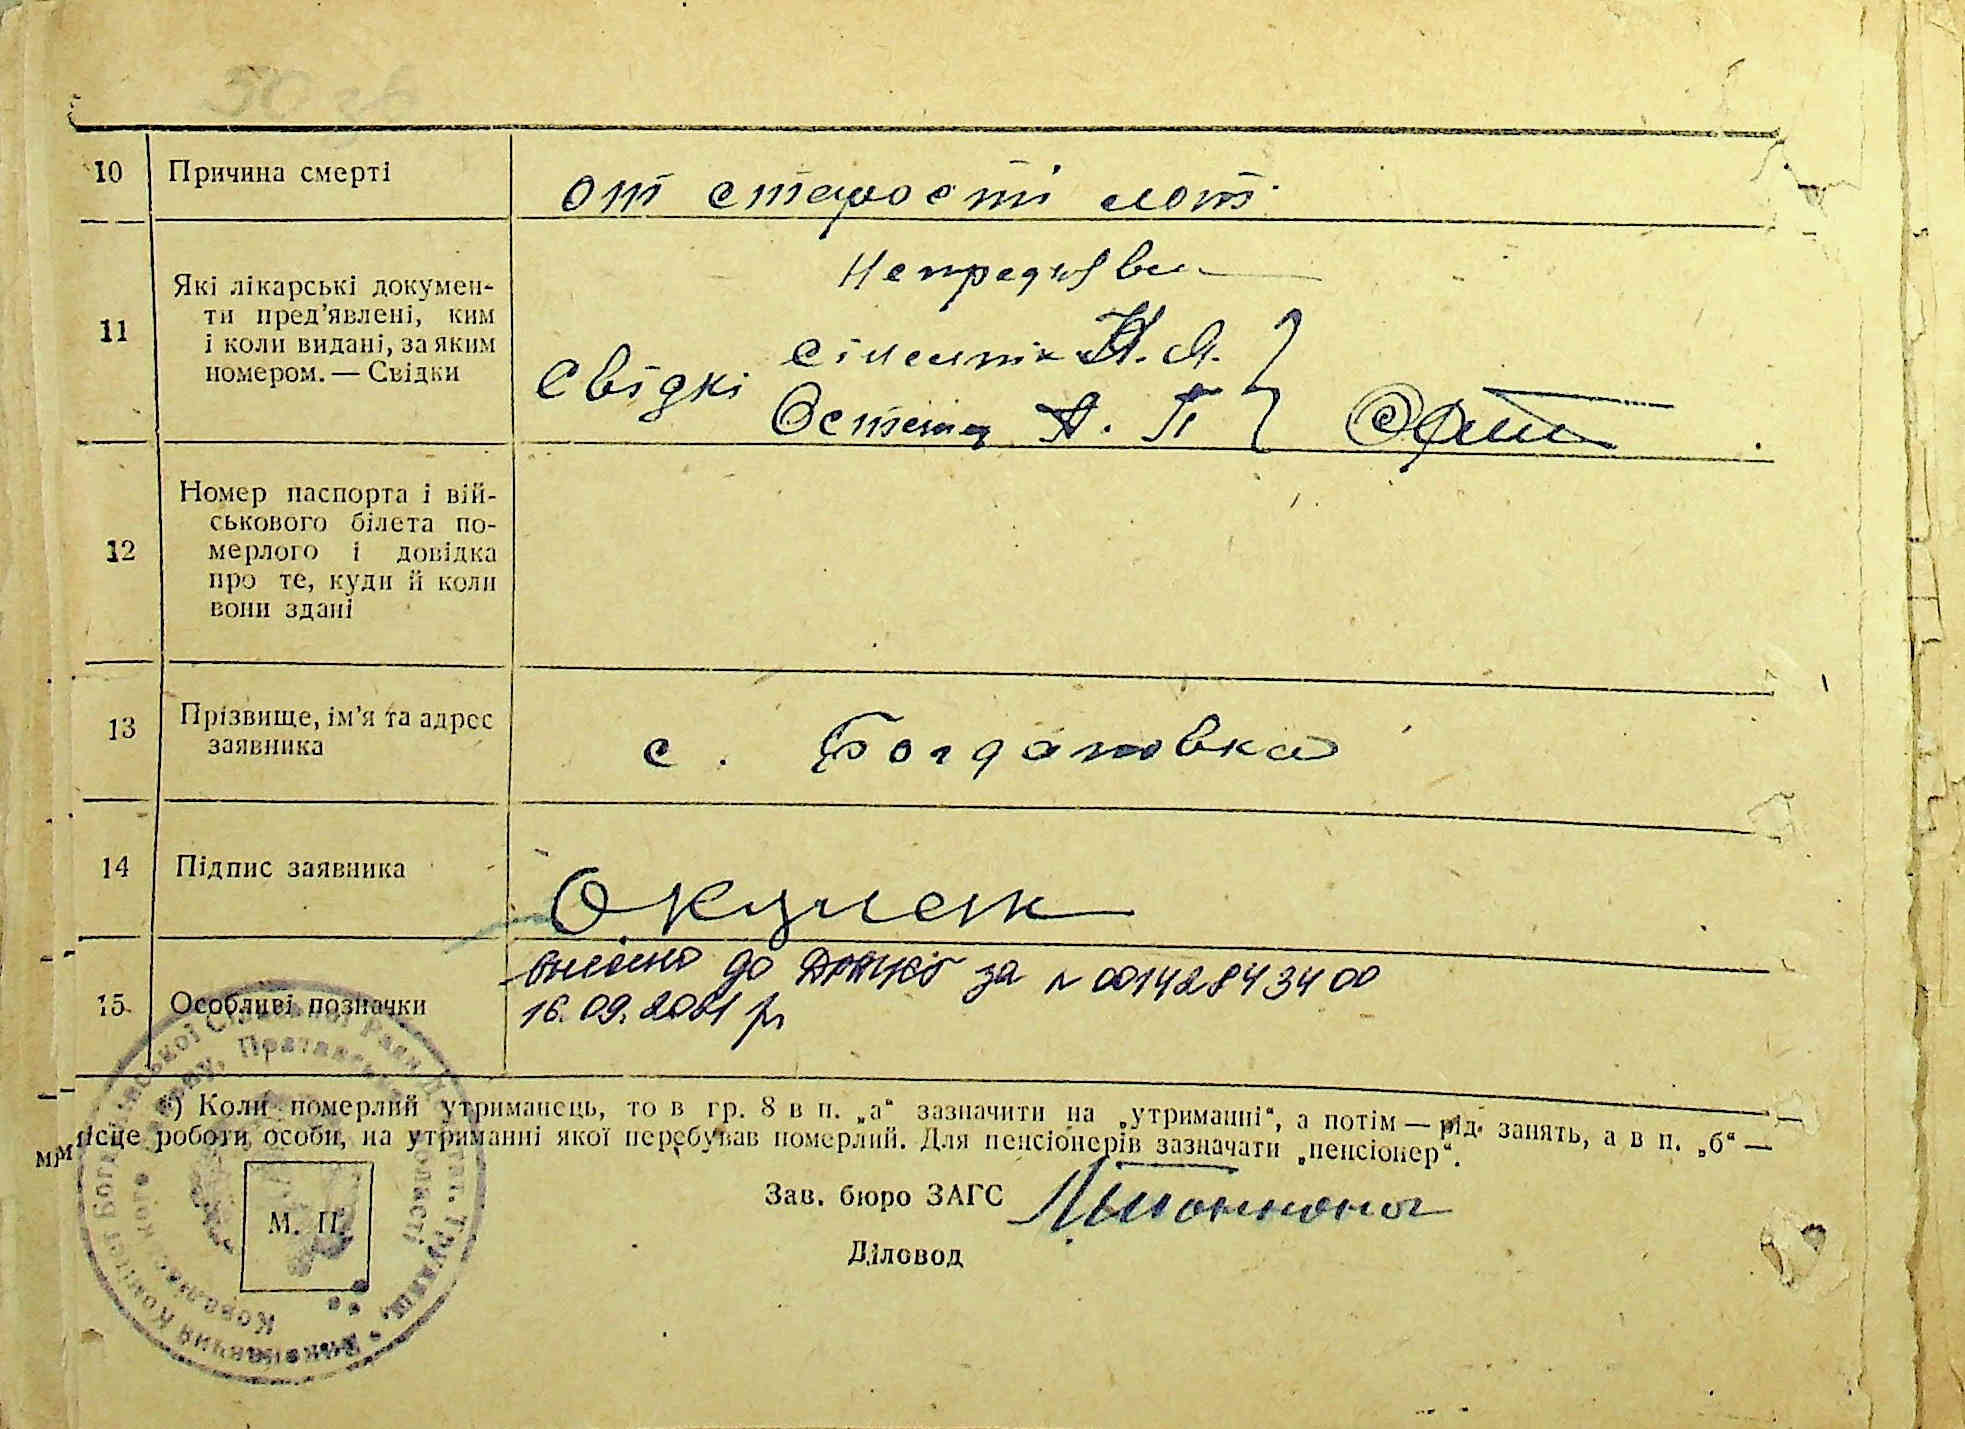 10 Причина смерті
от старості лет.
11 Які лікарські докумен-
ти пред'явлені, ким
і коли видані, за яким
номером. — Свідки
Свідкі
А. П
12 Номер паспорта і вій-
ськового білета по-
мерлого і довідка
про те, куди й коли
вони здані
13 Прізвище, ім'я та адрес
заявника
с. Богдановка
14 Підпис заявника
15 Особливі позначки
внесено до ДРАЦСГ за N 00142843400
16.09.2021 р.
*) Коли померлий утриманець, то в гр. 8 в п. „а“ зазначити на „утриманні“, а потім — рід занять, а в п. „б“ —
місце роботи особи, на утриманні якої перебував померлий. Для пенсіонерів зазначати „пенсіонер“.
Зав. бюро ЗАГС
М. П.
Діловод